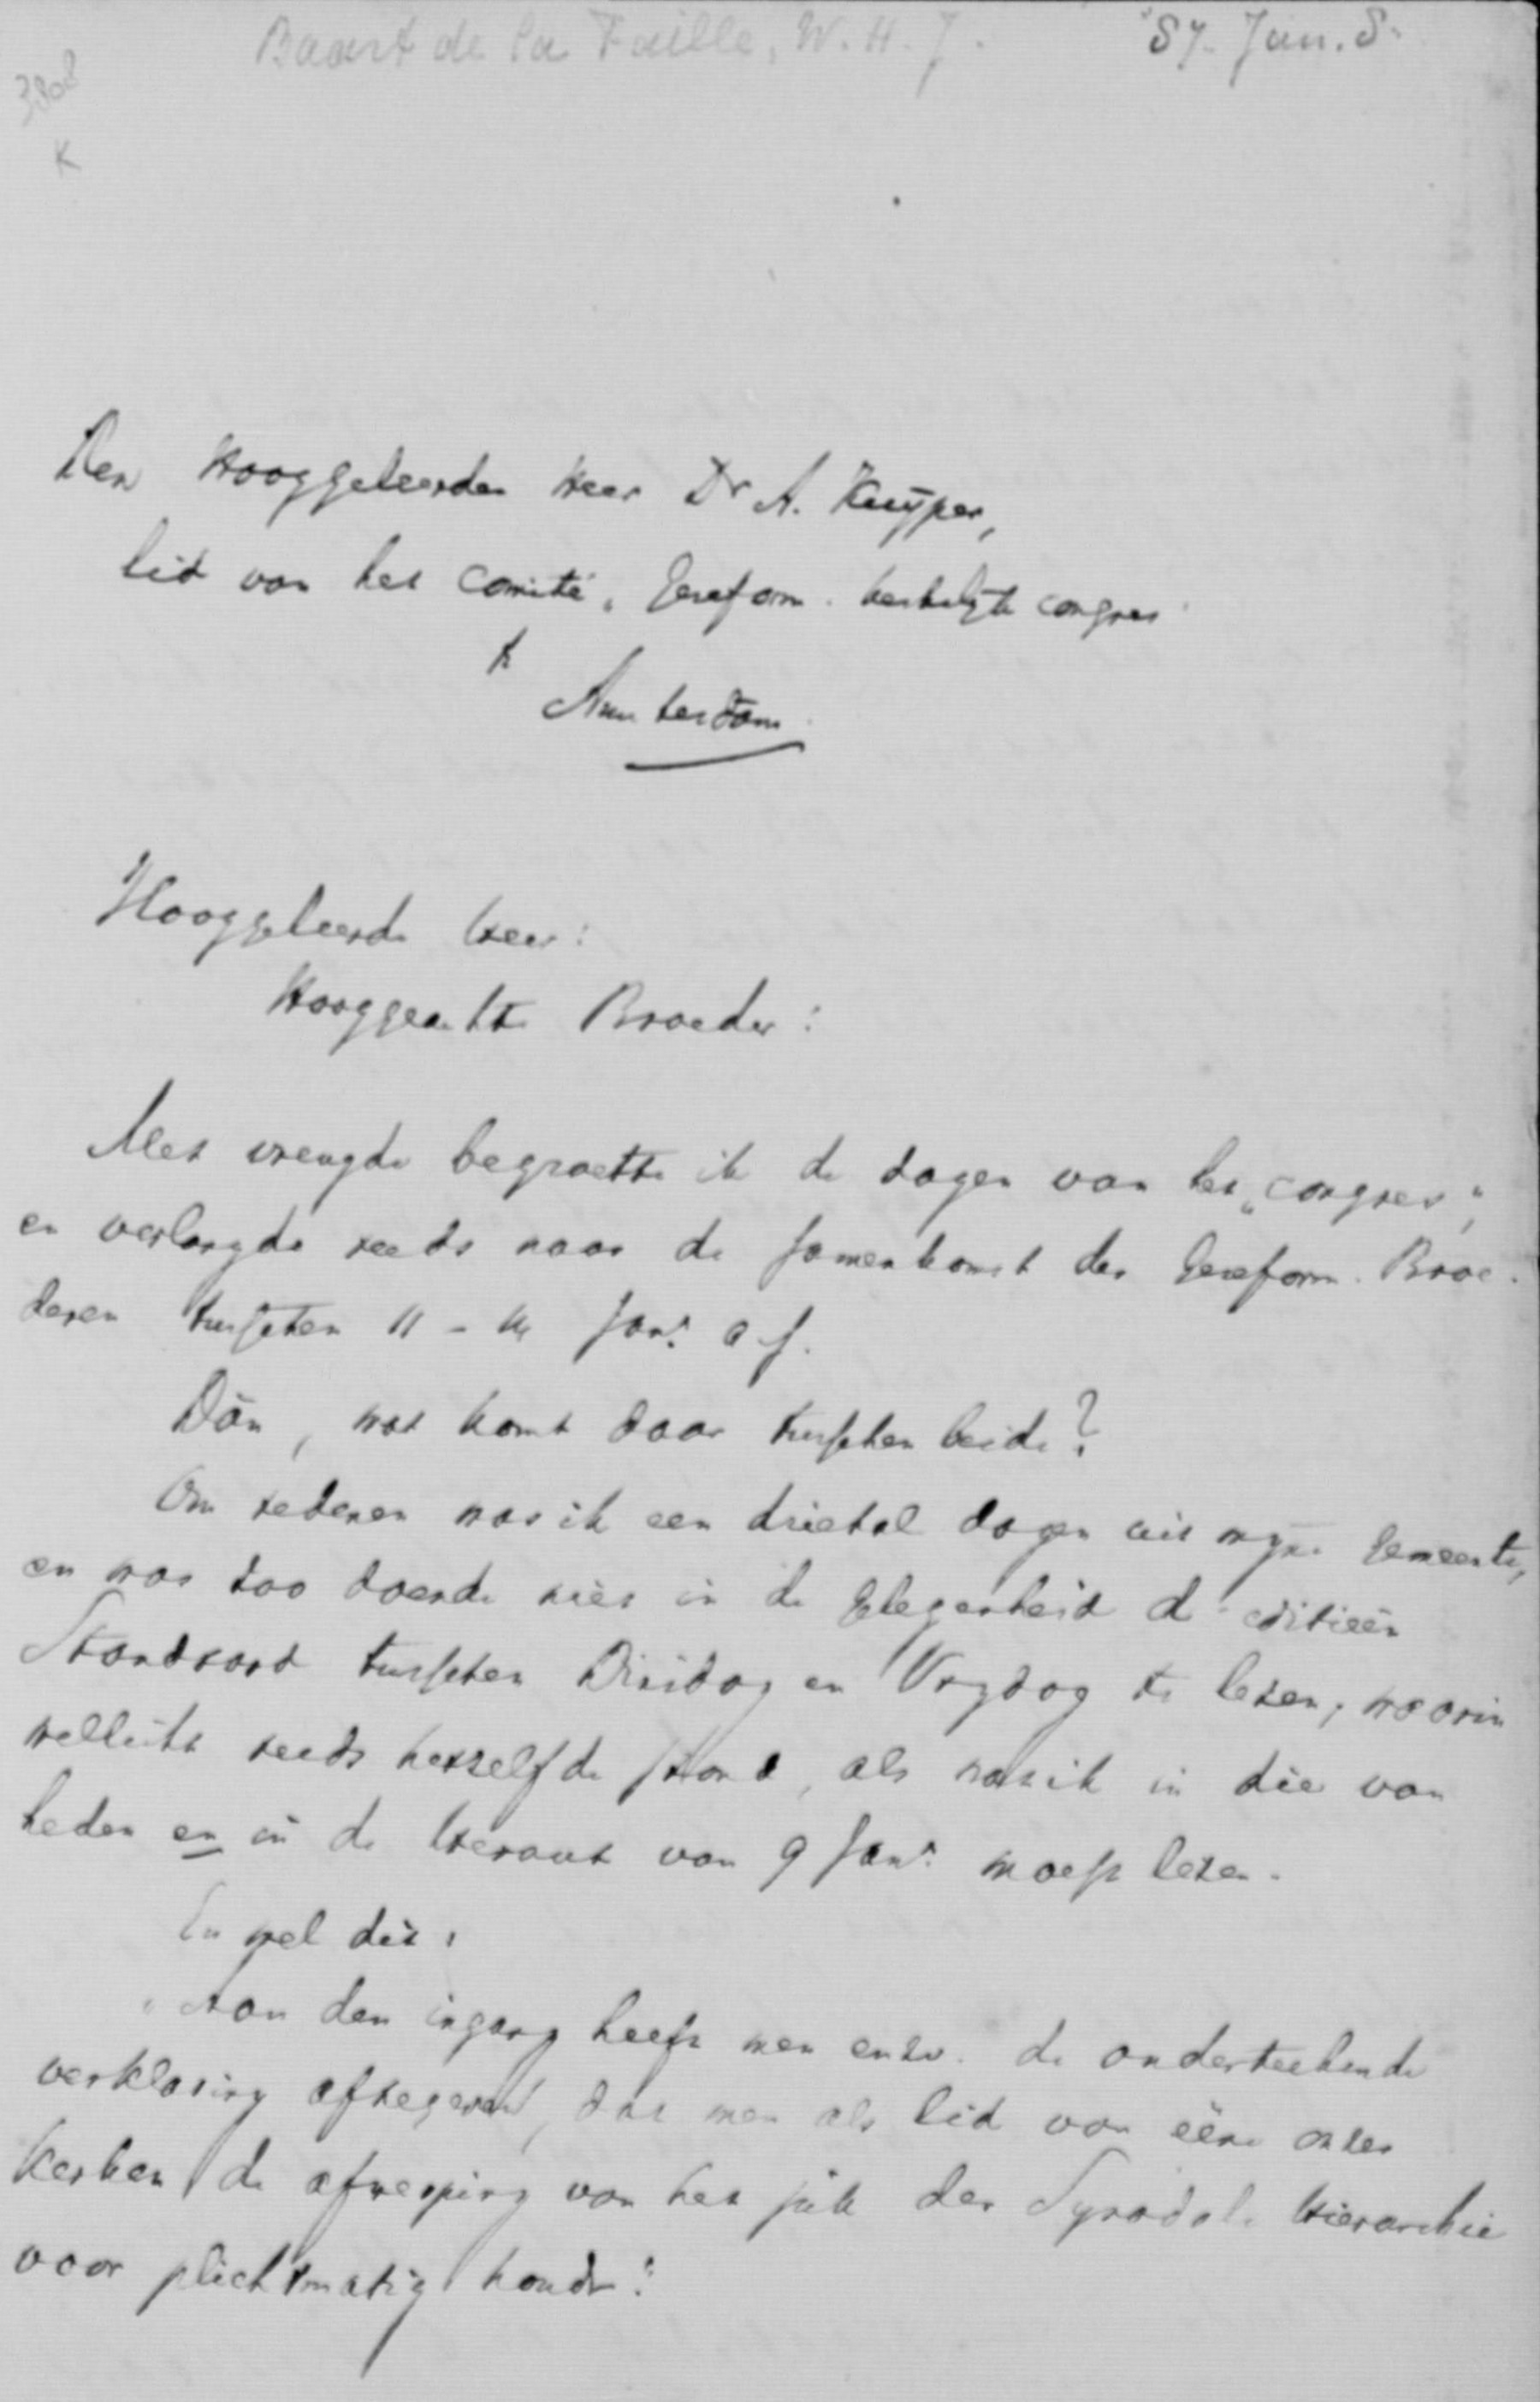 Baart de la Faille, W. H. J. '87. Jan. 8.
3808
K
Den Hooggeleerden Heer Dr A. Kuijper,
lid van het Comité „Gereform. kerkelijk congres"
te
Amsterdam.
Hooggeleerde Heer:
Hooggeachte Broeder:
Met vreugde begroette ik de dagen van het „congres",
en verlangde reeds naar de samenkomst der Gereform. Broe-
deren tusschen 11 - 14 Jan. a.s.
Dán, wat komt daar tusschen beide?
Om redenen was ik een drietal dagen uit mijne Gemeente,
en was zoo doende niet in de gelegenheid de editieën
Standaard tusschen Dinsdag en Vrijdag te lezen, waarin
wellicht reeds hetzelfde stond, als wat ik in die van
heden en in de Heraut van 9 Jan. moest lezen.
En wel dit:
„Aan den ingang heeft men enz. de onderteekende
verklaring afgegeven, dat men als lid van eene onzer
kerken de afwerping van het juk der Synodale Hierarchie
voor plichtmatig houdt."